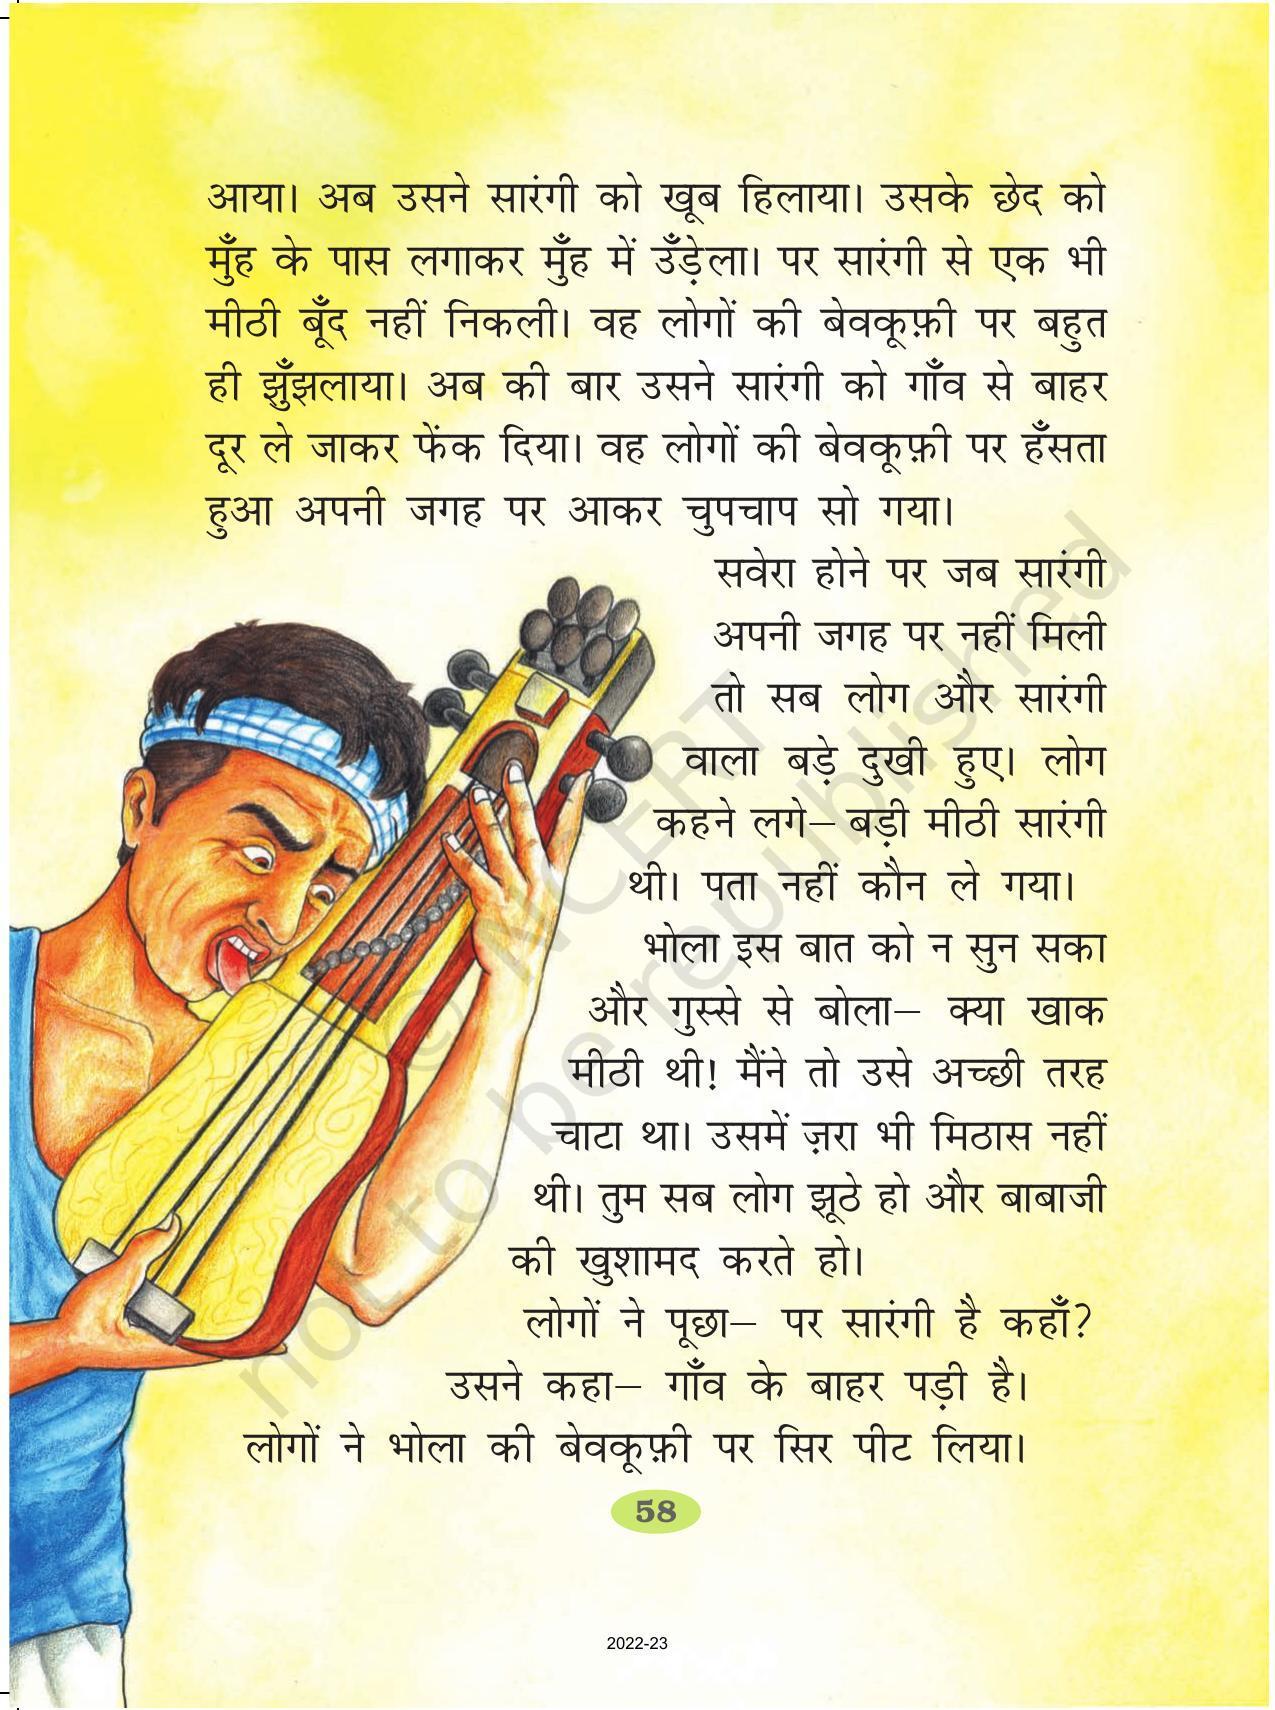 आया। अब उसने सारंगी को खूब हिलाया। उसके छेद को
मुँह के पास लगाकर मुँह में उँड़ेला। पर सारंगी से एक भी
मीठी बूँद नहीं निकली। वह लोगों की बेवकूफ़ी पर बहुत
ही झुँझलाया। अब की बार उसने सारंगी को गाँव से बाहर
दूर ले जाकर फेंक दिया। वह लोगों की बेवकूफ़ी पर हँसता
हुआ अपनी जगह पर आकर चुपचाप सो गया।
सवेरा होने पर जब सारंगी
अपनी जगह पर नहीं मिली
तो सब लोग और सारंगी
वाला बड़े दुखी हुए। लोग
कहने लगे– बड़ी मीठी सारंगी
थी। पता नहीं कौन ले गया।
भोला इस बात को न सुन सका
और गुस्से से बोला– क्या खाक
मीठी थी! मैंने तो उसे अच्छी तरह
चाटा था। उसमें ज़रा भी मिठास नहीं
थी। तुम सब लोग झूठे हो और बाबाजी
की खुशामद करते हो।
लोगों ने पूछा– पर सारंगी है कहाँ?
उसने कहा– गाँव के बाहर पड़ी है।
लोगों ने भोला की बेवकूफ़ी पर सिर पीट लिया।
58
2022-23
© NCERT
not to be republished